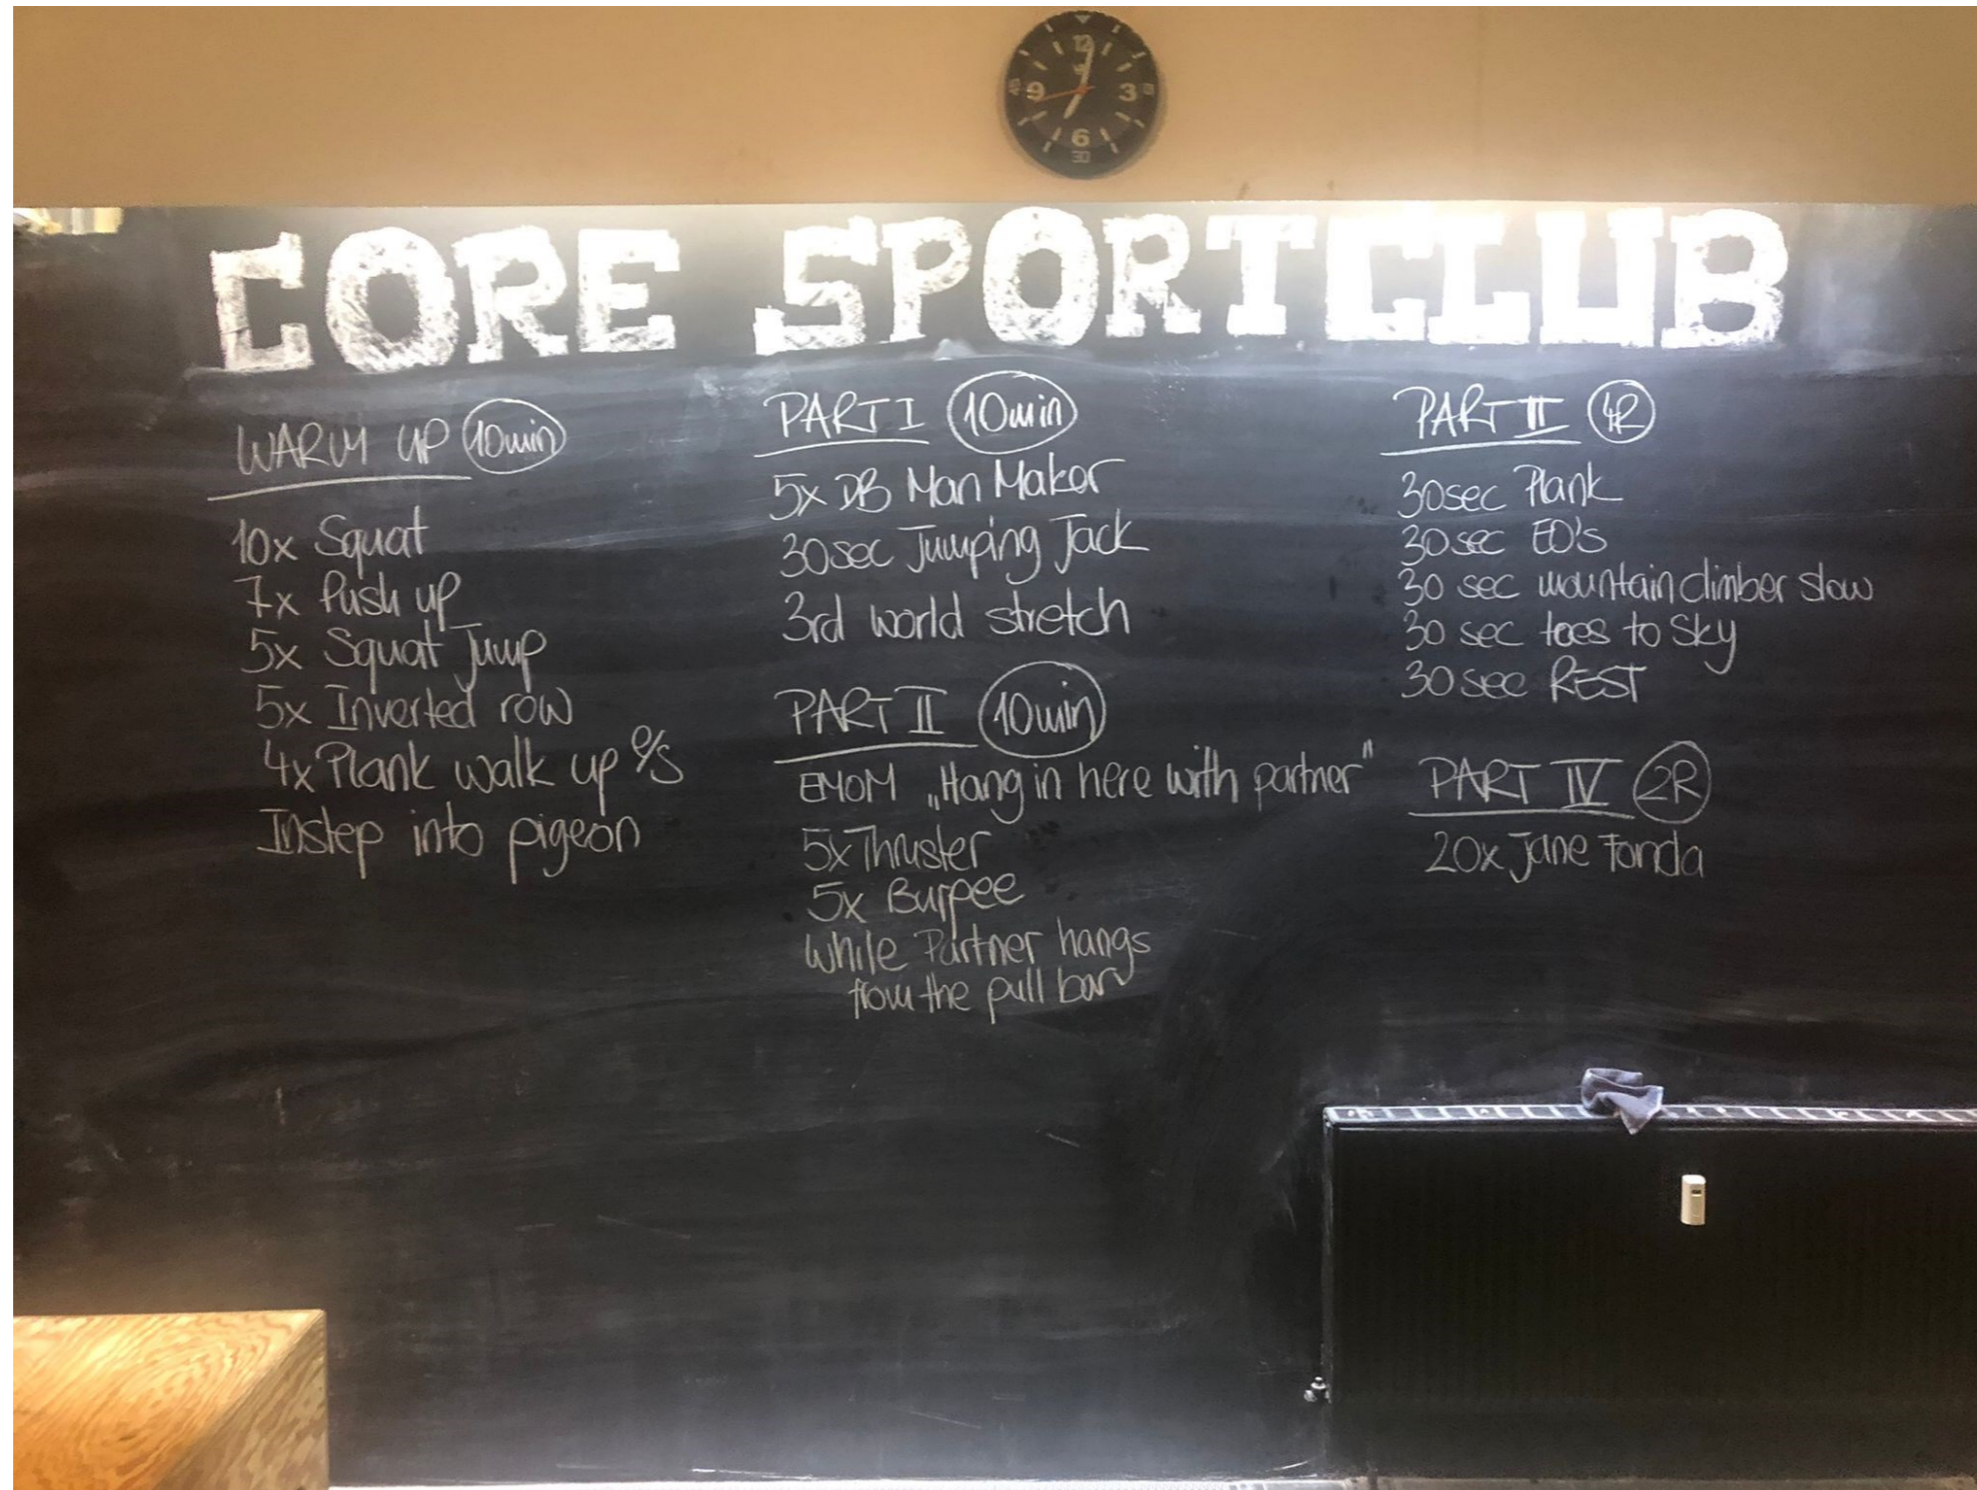 12
3
6
9
30
CORE SPORTCLUB
WARM UP 10min
10x Squat
7x Push up
5x Squat Jump
5x Inverted row
4x Plank walk up e/s
Instep into pigeon
PART I 10min
5x DB Man Maker
30sec Jumping Jack
3rd world stretch
PART II 10min
EMOM „Hang in here with partner"
5x Thruster
5x Burpee
while Partner hangs
from the pull bar
PART III 4R
30sec Plank
30sec EO's
30 sec mountain climber slow
30 sec toes to sky
30sec REST
PART IV 2R
20x Jane Fonda